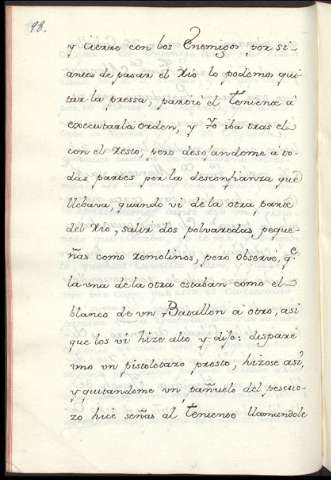 98.
y cierro con los Enemigos por si
antes de pasar el Rio lo podemos qui
tar la pressa; partió el Teniente á
executar la orden, y Yo iba tras el
con el resto, pero desojandome á to
das partes por la desconfianza que
llebava, quando vi de la otra parte
del Rio, salir dos polvaredas peque
ñas como remolinos, pero observe, q.e
la una de la otra estaban como el
blanco de un Batallon á otro, asi
que los vi hize alto y dijo: dispare
uno un pistoletazo presto, hizose asi,
y quitandome un pañuelo del pescue
zo hice señas al Teniente llamandole